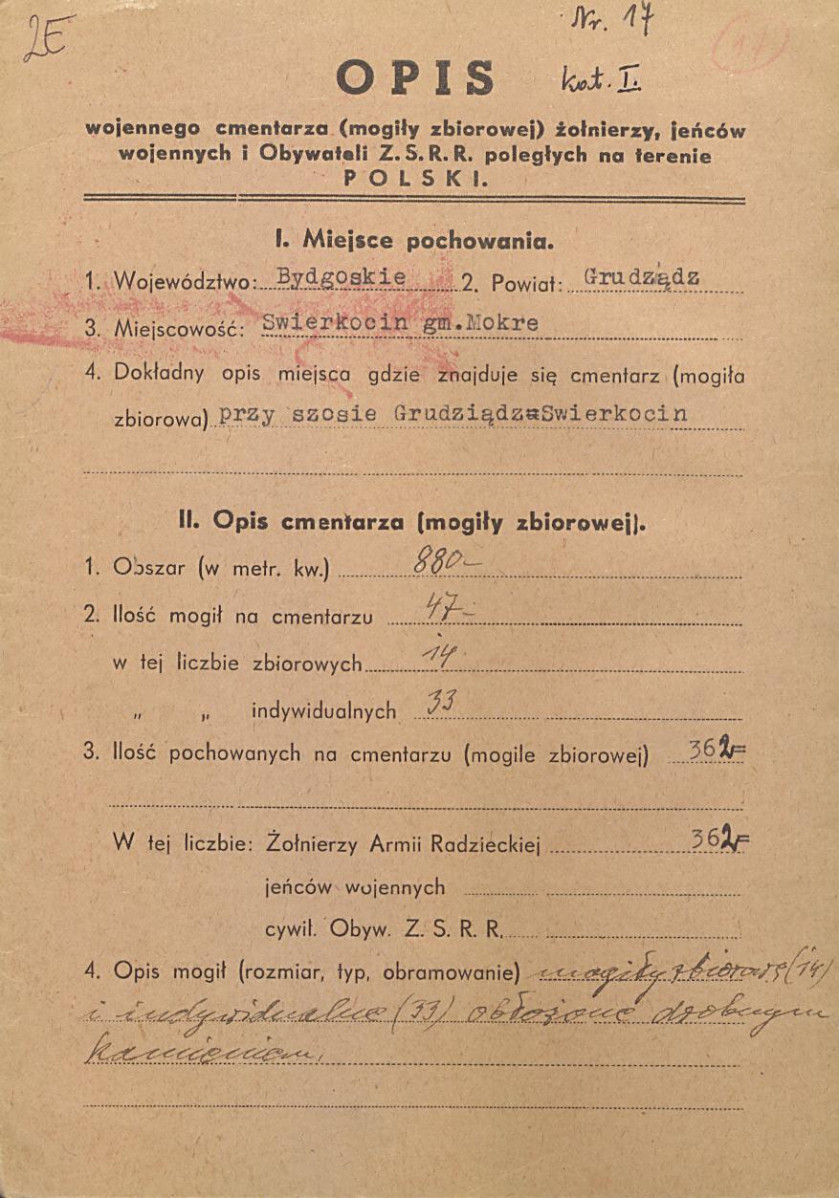 2E
Nr. 17
(17)
OPIS
kat. I.
wojennego cmentarza (mogiły zbiorowej) żołnierzy, jeńców
wojennych i Obywateli Z. S. R. R. poległych na terenie
POLSKI.
I. Miejsce pochowania.
1. Województwo: Bydgoskie 2. Powiat: Grudządz
3. Miejscowość: Swierkocin gm.Mokre
4. Dokładny opis miejsca gdzie znajduje się cmentarz (mogiła
zbiorowa) przy szosie Grudziądz-Swierkocin
II. Opis cmentarza (mogiły zbiorowej).
1. Obszar (w metr. kw.) 880-
2. Ilość mogił na cmentarzu 47-
w tej liczbie zbiorowych 14
" " indywidualnych 33
3. Ilość pochowanych na cmentarzu (mogile zbiorowej) 362=
W tej liczbie: Żołnierzy Armii Radzieckiej 362=
jeńców wojennych
cywil. Obyw. Z. S. R. R.
4. Opis mogił (rozmiar, typ, obramowanie) mogiły zbiorowe (14)
i indywidualne (33) obłożone drobnym
kamieniem.